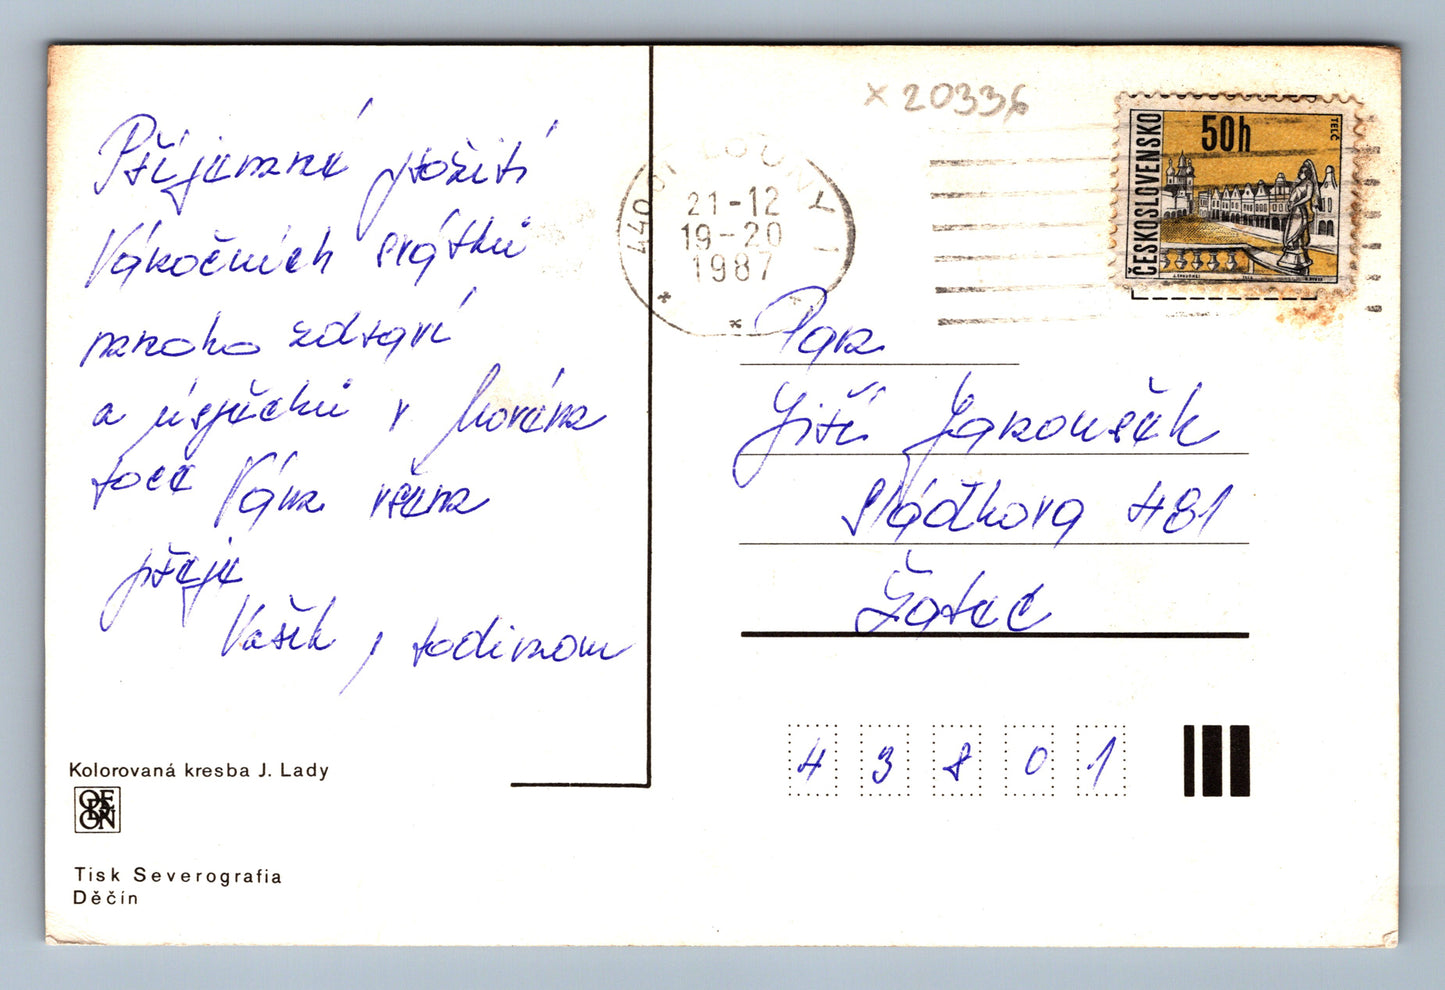 Příjemné prožití
Vánočních svátků
mnoho zdraví
a úspěchů v Novém
roce Vám všem
přeje
Vašík s rodinou
Kolorovaná kresba J. Lady
ODEON
Tisk Severografia
Děčín
x 20336
440 01 LOUNY 1
21-12
19-20
1987
ČESKOSLOVENSKO
50h
TELČ
Pan
Jiří Janoušek
Sládkova 481
Žatec
43801